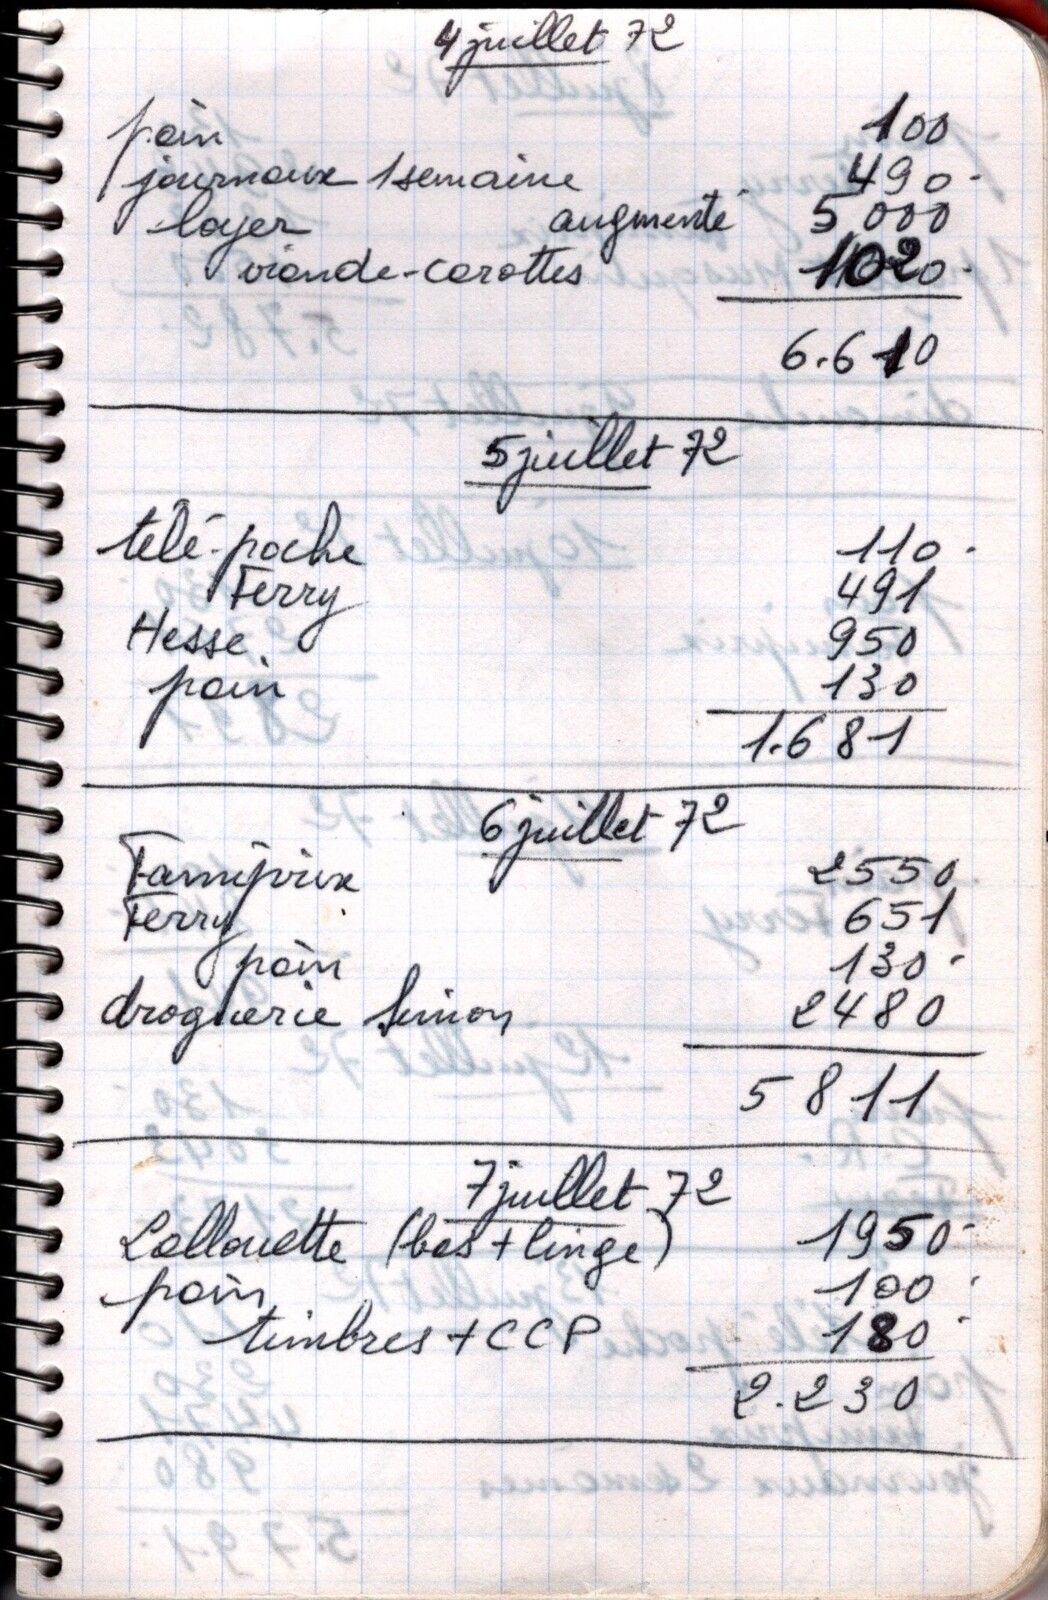 4 juillet 72
pain 100
journaux 1 semaine 490.
loyer augmenté 5 000
viande-carottes 1020.
6.610
5 juillet 72
télé-poche 110.
Ferry 491
Hesse 950
pain 130
1.681
6 juillet 72
Famiprix 2550.
Ferry 651
pain 130.
droguerie Simon 2480
5811
7 juillet 72
Lallouette (bas + linge) 1950.
pain 100.
timbres + CCP 180.
2.230